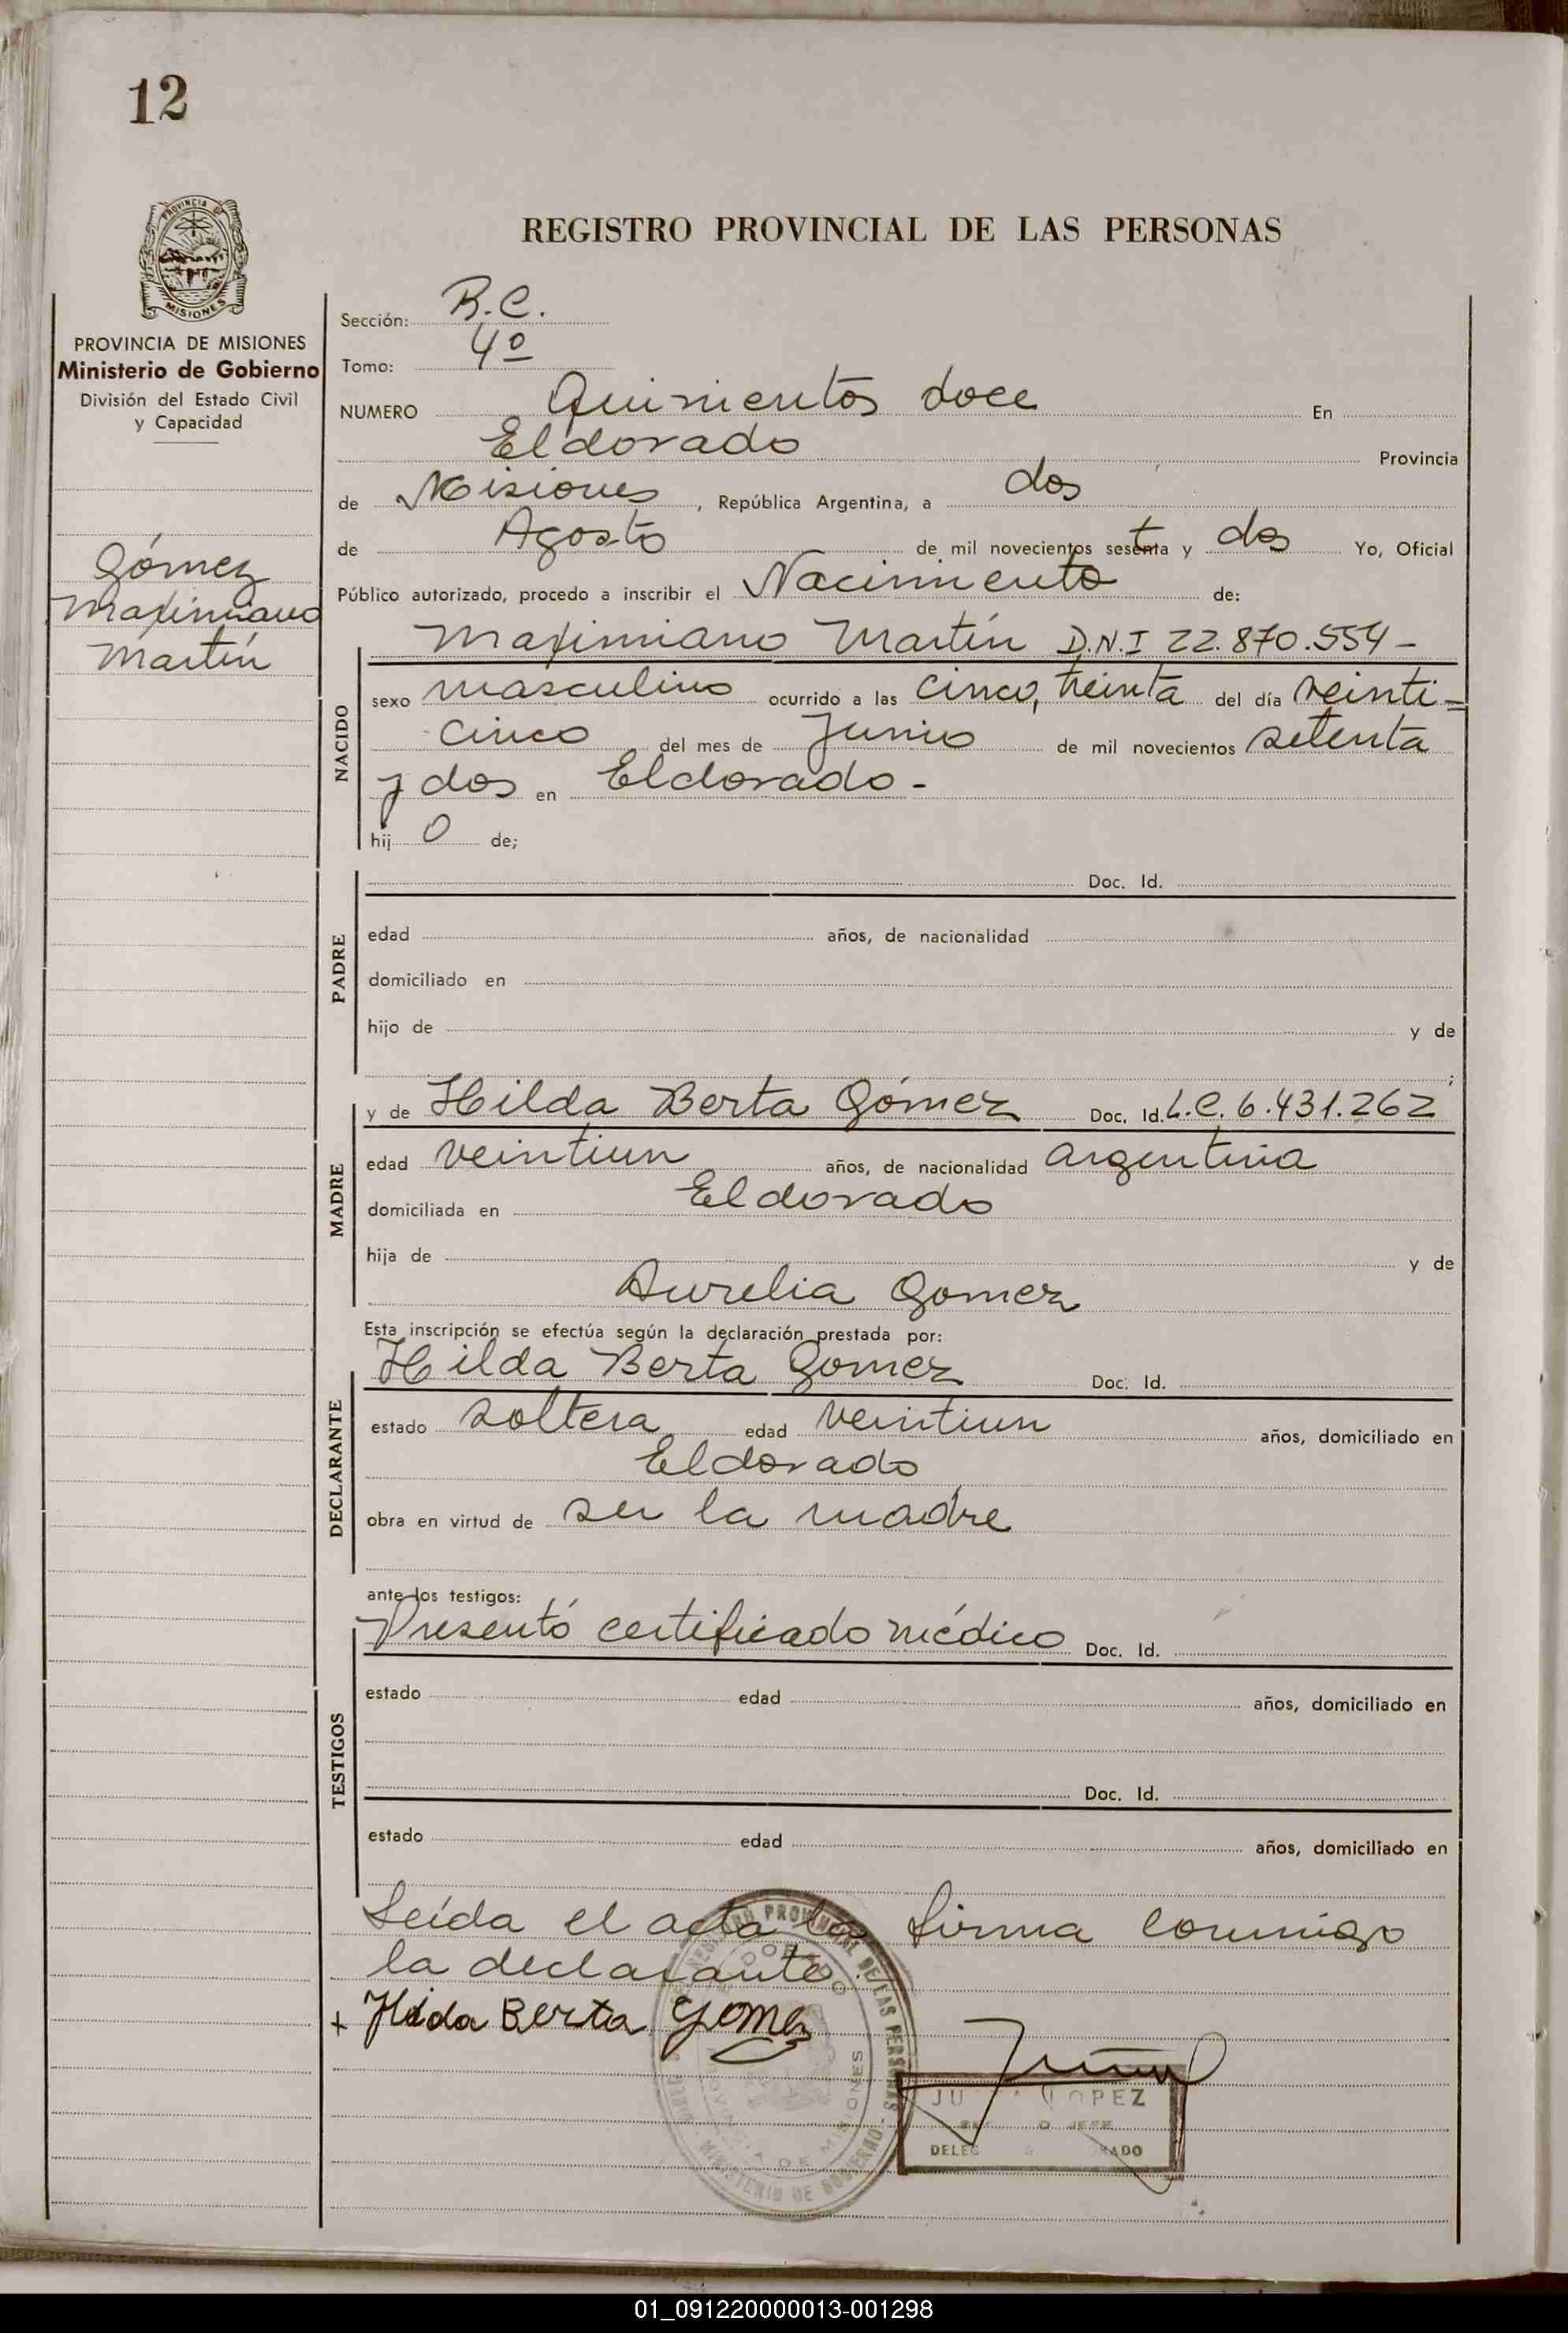 12
PROVINCIA
MISIONES
REGISTRO PROVINCIAL DE LAS PERSONAS
PROVINCIA DE MISIONES
Ministerio de Gobierno
División del Estado Civil
y Capacidad
Gómez
Maximiano
Martín
Sección: R.C.
Tomo: 4º
NUMERO Quinientos doce En
Eldorado Provincia
de Misiones, República Argentina, a dos
de Agosto de mil novecientos setenta y dos Yo, Oficial
Público autorizado, procedo a inscribir el Nacimiento de:
NACIDO
Maximiano Martín D.N.I 22.870.554-
sexo masculino ocurrido a las cinco, treinta del día veinti=
cinco del mes de Junio de mil novecientos setenta
y dos en Eldorado-
hij o de;
PADRE
Doc. Id.
edad años, de nacionalidad
domiciliado en
hijo de y de
;
MADRE
y de Hilda Berta Gómez Doc. Id. L.C. 6.431.262
edad veintiun años, de nacionalidad argentina
domiciliada en Eldorado
hija de y de
Aurelia Gomez
Esta inscripción se efectúa según la declaración prestada por:
DECLARANTE
Hilda Berta Gomez Doc. Id.
estado soltera edad veintiun años, domiciliado en
Eldorado
obra en virtud de ser la madre
ante los testigos:
TESTIGOS
Presentó certificado médico Doc. Id.
estado edad años, domiciliado en
Doc. Id.
estado edad años, domiciliado en
Leída el acta la firma conmigo
la declarante.
+ Hilda Berta Gomez
REGISTRO PROVINCIAL DE LAS PERSONAS
MINISTERIO DE GOBIERNO
ELDORADO
PROVINCIA DE MISIONES
LOPEZ
01_091220000013-001298